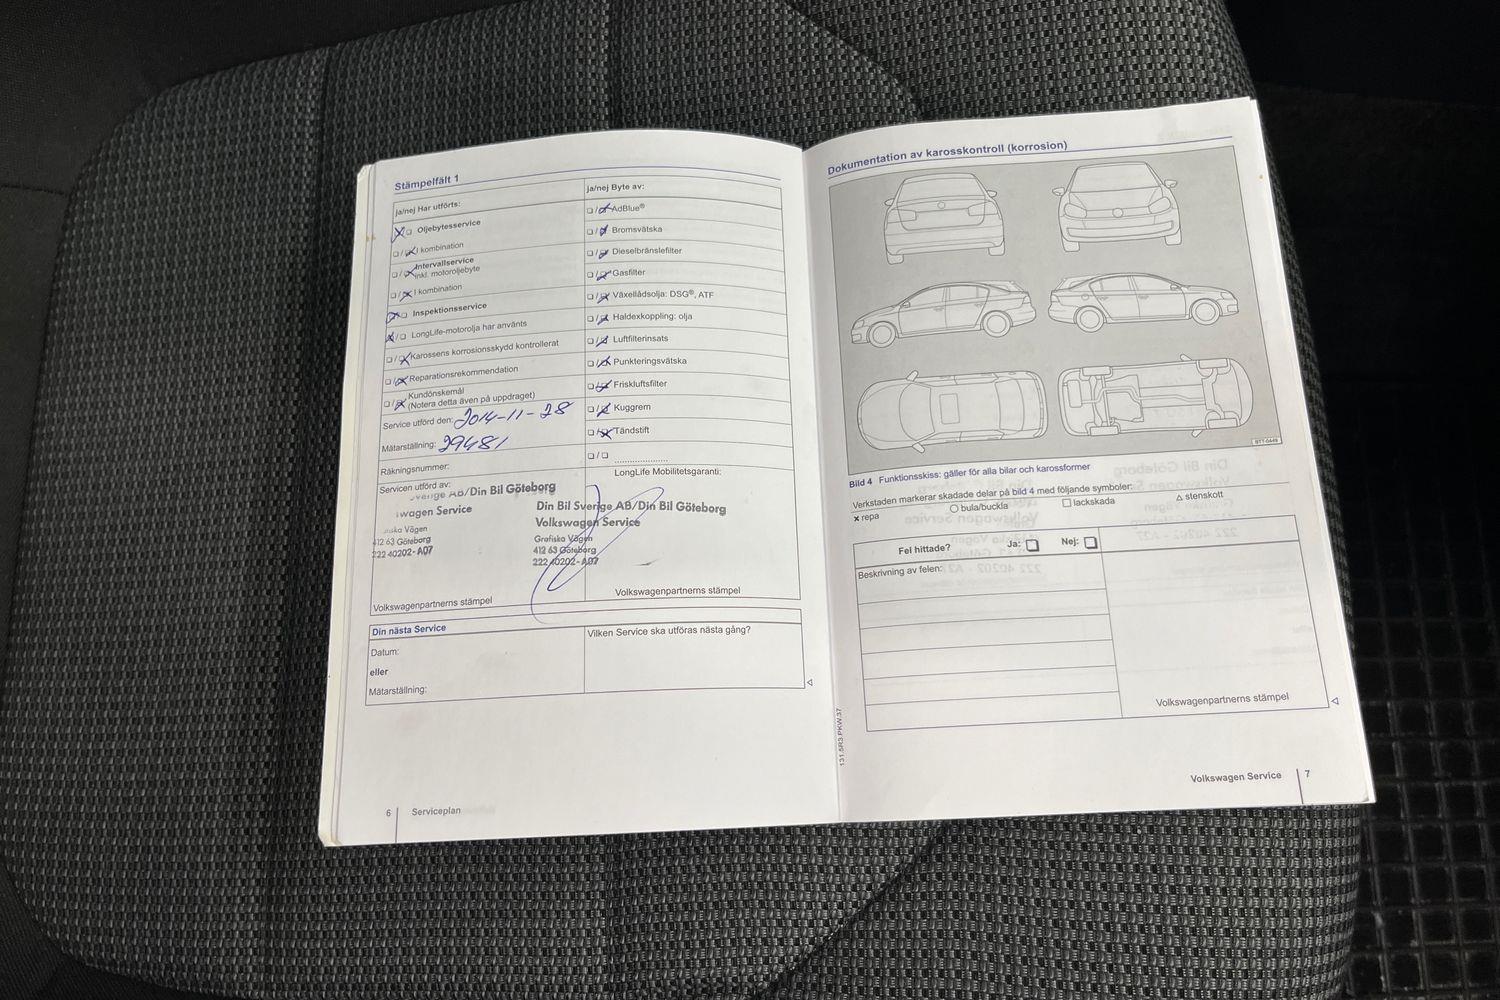 Stämpelfält 1
ja/nej Har utförts:
Oljebytesservice
I kombination
Intervallservice
inkl. motoroljebyte
I kombination
Inspektionsservice
LongLife-motorolja har använts
Karossens korrosionsskydd kontrollerat
Reparationsrekommendation
Kundönskemål
(Notera detta även på uppdraget)
Service utförd den: 2014-11-28
Mätarställning: 29481
Räkningsnummer:
Servicen utförd av:
Sverige AB/Din Bil Göteborg
wagen Service
Vägen
412 63 Göteborg
222 40202-A07
Volkswagenpartnerns stämpel
ja/nej Byte av:
AdBlue®
Bromsvätska
Dieselbränslefilter
Gasfilter
Växellådsolja: DSG®, ATF
Haldexkoppling: olja
Luftfilterinsats
Punkteringsvätska
Friskluftsfilter
Kuggrem
Tändstift
LongLife Mobilitetsgaranti:
Din Bil Sverige AB/Din Bil Göteborg
Volkswagen Service
Grafiska Vägen
412 63 Göteborg
222 40202-A07
Volkswagenpartnerns stämpel
Din nästa Service
Datum:
eller
Mätarställning:
Vilken Service ska utföras nästa gång?
6 Serviceplan
Dokumentation av karosskontroll (korrosion)
BTT-0449
Bild 4 Funktionsskiss: gäller för alla bilar och karossformer
Verkstaden markerar skadade delar på bild 4 med följande symboler:
x repa ○ bula/buckla □ lackskada △ stenskott
Fel hittade? Ja: Nej:
Beskrivning av felen:
Volkswagenpartnerns stämpel
131.5R3.PKW.37
Volkswagen Service 7